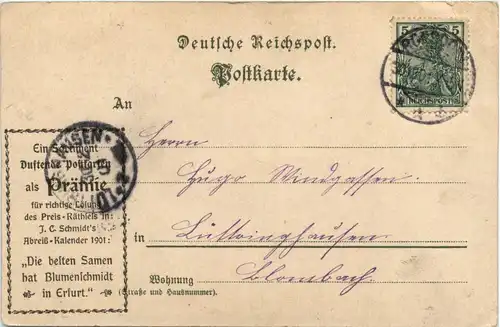 Deutsche Reichspost.
Postkarte.
5 5
REICHSPOST
An
Herrn
Hugo Windgassen
in Lüttringhausen
Wohnung Blombach
(Straße und Hausnummer).
Ein Sortiment
Duftende Postkarten
als Prämie
für richtige Lösung
des Preis-Räthsels in
J. C. Schmidt's
Abreiß-Kalender 1901:
„Die besten Samen
hat Blumenschmidt
in Erfurt."